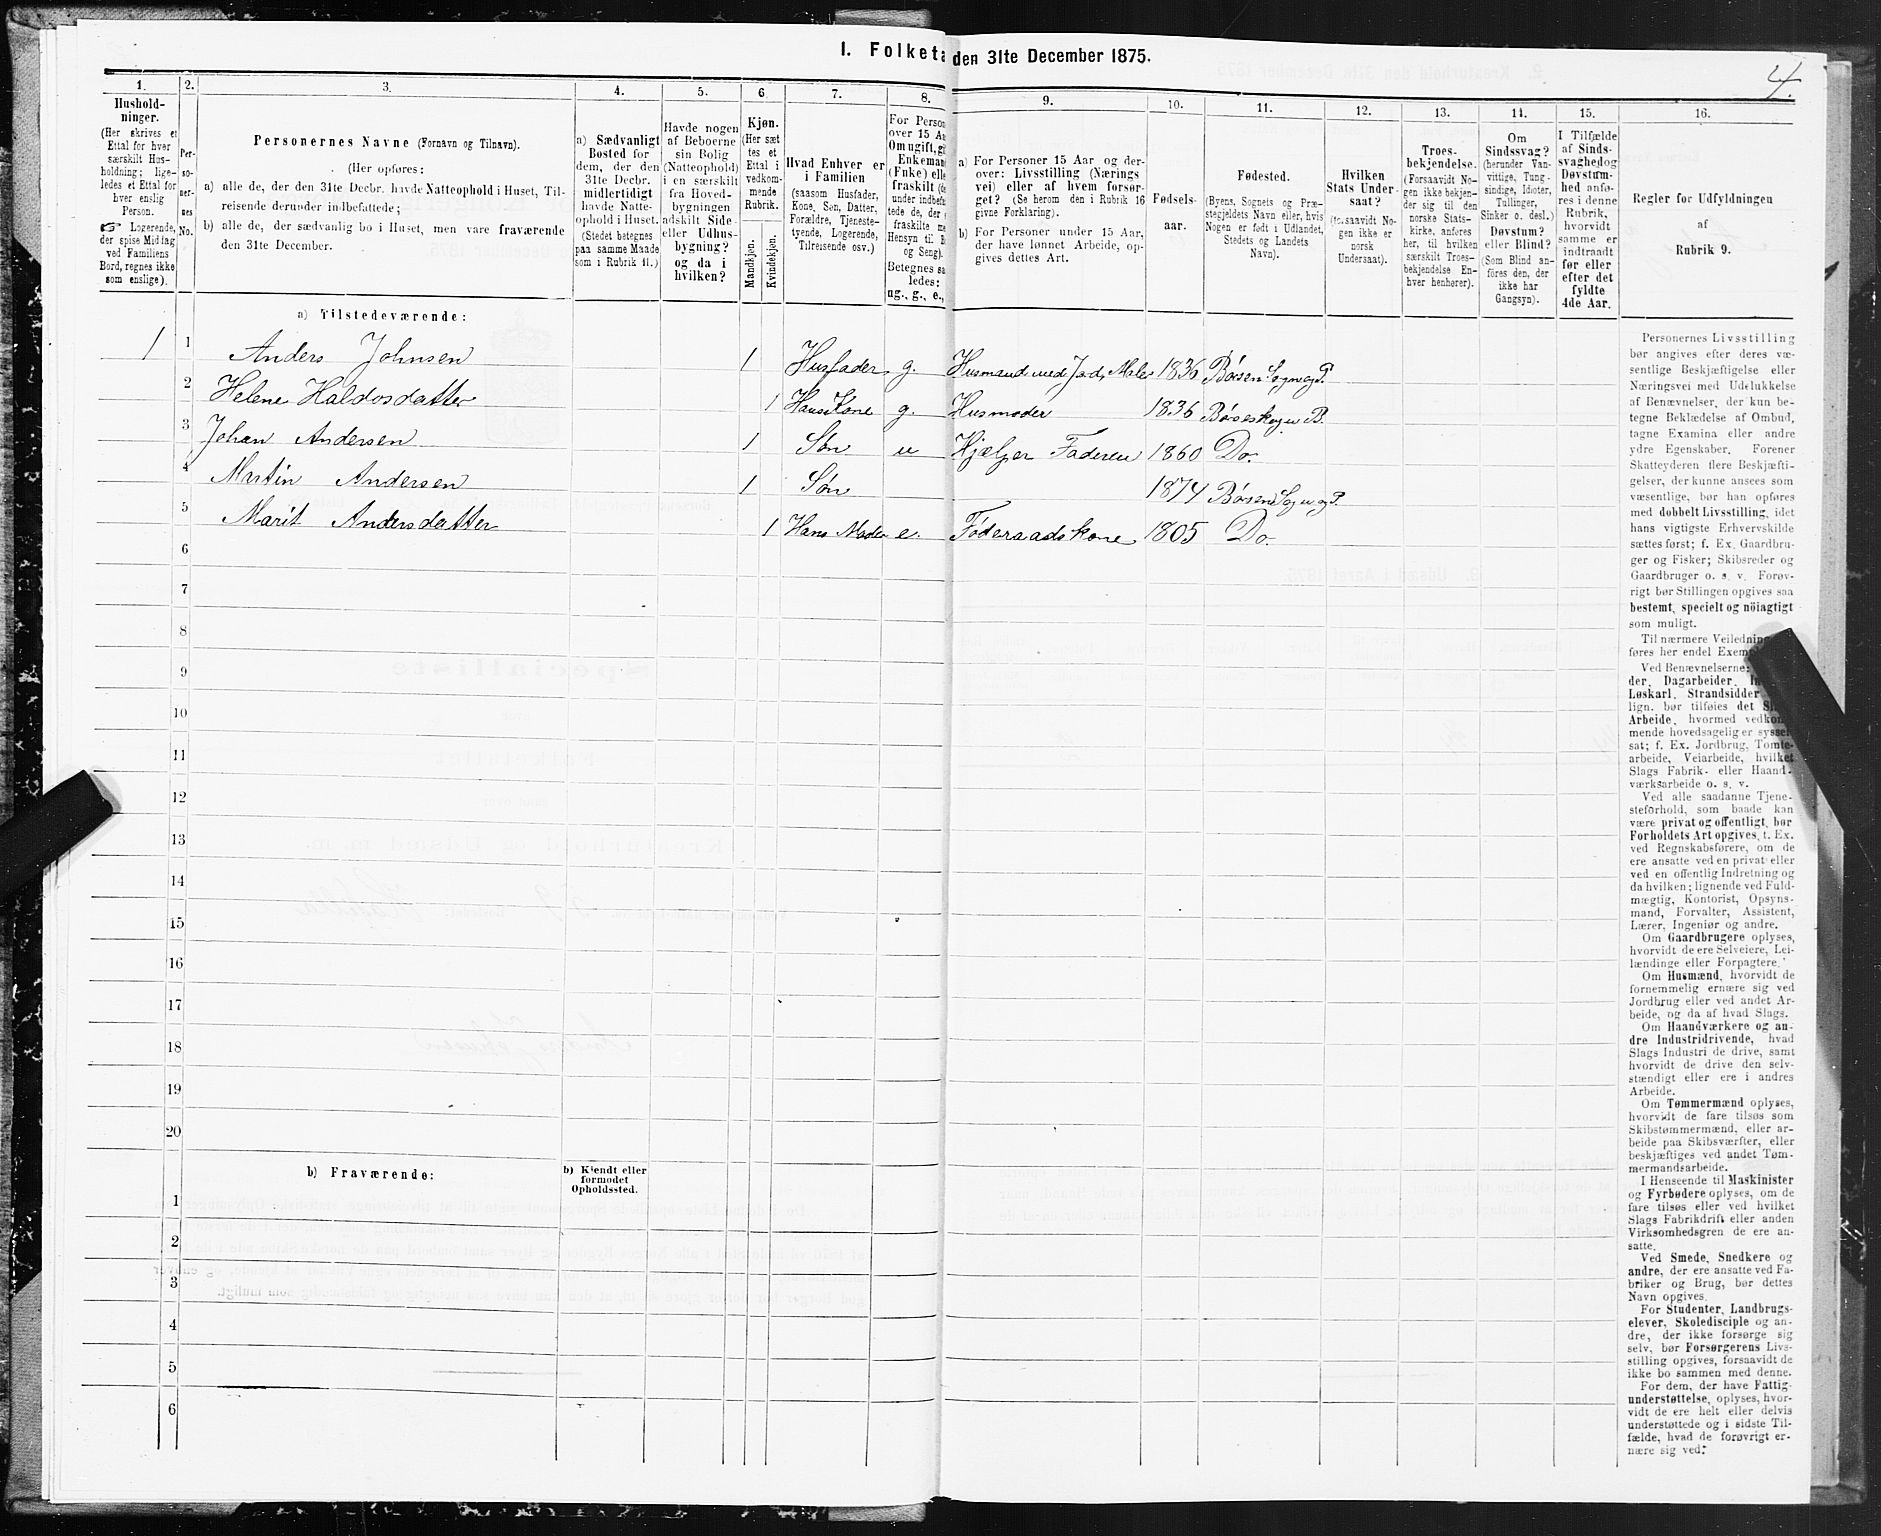 I. Folketa den 31te December 1875.
4.
1.
Hushold-
ninger.
(Her skrives et
Ettal for hver
særskilt Hus-
holdning; lige-
ledes et Ettal for
hver enslig
Person.
☞ Logerende,
der spise Middag
ved Familiens
Bord, regnes ikke
som enslige).
2.
Per-
so-
ner-
nes
No.
3.
Personernes Navne (Fornavn og Tilnavn).
(Her opføres:
a) alle de, der den 31te Decbr. havde Natteophold i Huset, Til-
reisende derunder indbefattede;
b) alle de, der sædvanlig bo i Huset, men vare fraværende
den 31te December.
4.
a) Sædvanligt
Bosted for
dem, der den
31te Decbr.
midlertidigt
havde Natte-
ophold i Huset.
(Stedet betegnes
paa samme Maade
som i Rubrik 11.)
5.
Havde nogen
af Beboerne
sin Bolig
(Natteophold)
i en særskilt
fra Hoved-
bygningen
adskilt Side-
eller Udhus-
bygning?
og da i
hvilken?
6.
Kjøn.
(Her sæt
tes et
Ettal i
vedkom-
mende
Rubrik.
Mandkjøn.
Kvindekjøn.
7.
Hvad Enhver er
i Familien
(saasom Husfader,
Kone, Søn, Datter,
Forældre, Tjeneste-
tyende, Logerende,
Tilreisende osv.)
8.
For Person
over 15 Aa
Om ugift, gi
Enkemand
(Enke) elle
fraskilt (de
under indbefat
tede de, der e
fraskilte me
Hensyn til B
og Seng).
Betegnes saa
ledes:
ug., g., e.,
9.
a) For Personer 15 Aar og der-
over: Livsstilling (Nærings
vei) eller af hvem forsør-
get? (Se herom den i Rubrik 16
givne Forklaring).
b) For Personer under 15 Aar,
der have lønnet Arbeide, op-
gives dettes Art.
10.
Fødsels-
aar.
11.
Fødested.
(Byens, Sognets og Præ-
stegjeldets Navn eller, hvis
Nogen er født i Udlandet,
Stedets og Landets
Navn).
12.
Hvilken
Stats Under-
saat?
(forsaavidt No-
gen ikke er
norsk
Undersaat).
13.
Troes-
bekjendelse.
(Forsaavidt No-
gen ikke bekjen-
der sig til den
norske Stats-
kirke, anføres
her, til hvilken
særskilt Troes-
bekjendelse En-
hver henhører).
14.
Om
Sindssvag?
(herunder Van-
vittige, Tung-
sindige, Idioter,
Tullinger,
Sinker o. desl.)
Døvstum?
eller Blind?
(Som Blind an-
føres den, der
ikke har
Gangsyn).
15.
I Tilfælde
af Sinds-
svaghed og
Døvstum-
hed anfø-
res i denne
Rubrik,
hvorvidt
samme er
indtraadt
før eller
efter det
fyldte
4de Aar.
16.
Regler for Udfyldningen
af
Rubrik 9.
a) Tilstedeværende:
1 1 Anders Johnsen 1 Husfader g. Husmand med Jord, Maler 1836 Børsen Sogn og P.
2 Helene Haldosdatter 1 Hans Kone g. Husmoder 1836 Børseskogn B.
3 Johan Andersen 1 Søn u Hjælper Faderen 1860 Do.
4 Martin Andersen 1 Søn 1874 Børsen Sogn og P.
5 Marit Andersdatter 1 Hans Moder e. Føderaadskone 1805 Do.
6
7
8
9
10
11
12
13
14
15
16
17
18
19
20
b) Fraværende:
b) Kjendt eller
formodet
Opholdssted.
1
2
3
4
5
6
Personernes Livsstilling
bør angives efter deres væ-
sentlige Beskjæftigelse eller
Næringsvei med Udelukkelse
af Benævnelser, der kun be-
tegne Beklædelse af Ombud,
tagne Examina eller andre
ydre Egenskaber. Forener
Skatteyderen flere Beskjæfti-
gelser, der kunne ansees som
væsentlige, bør han opføres
med dobbelt Livsstilling, idet
hans vigtigste Erhvervskilde
sættes først; f. Ex. Gaardbru-
ger og Fisker; Skibsreder og
Gaardbruger o. s. v. Forøv-
rigt bør Stillingen opgives saa
bestemt, specielt og nöiagtigt
som muligt.
Til nærmere Veiledning
føres her endel Exempler
Ved Benævnelserne:
der, Dagarbeider, In
Løskarl, Strandsidder
lign. bør tilføies det Slags
Arbeide, hvormed vedkom-
mende hovedsagelig er syssel-
sat; f. Ex. Jordbrug, Tomte-
arbeide, Veiarbeide, hvilket
Slags Fabrik- eller Haand-
værksarbeide o. s. v.
Ved alle saadanne Tjene-
steforhold, som baade kan
være privat og offentligt, bør
Forholdets Art opgives, t. Ex.
ved Regnskabsførere, om de
ere ansatte ved en privat eller
ved en offentlig Indretning og
da hvilken; lignende ved Fuld-
mægtig, Kontorist, Opsyns-
mand, Forvalter, Assistent,
Lærer, Ingeniør og andre.
Om Gaardbrugere oplyses,
hvorvidt de ere Selveiere, Lei-
lændinge eller Forpagtere.
Om Husmænd, hvorvidt de
fornemmelig ernære sig ved
Jordbrug eller ved andet Ar-
beide, og da af hvad Slags.
Om Haandværkere og an-
dre Industridrivende, hvad
Slags Industri de drive, samt
hvorvidt de drive den selv-
stændigt eller ere i andres
Arbeide.
Om Tømmermænd oplyses,
hvorvidt de fare tilsøs som
Skibstømmermænd, eller ar-
beide paa Skibsværfter, eller
beskjæftiges ved andet Tøm-
mermandsarbeide.
I Henseende til Maskinister
og Fyrbødere oplyses, om de
fare tilsøs eller ved hvilket
Slags Fabrikdrift eller anden
Virksomhedsgren de ere an-
satte.
Ved Smede, Snedkere og
andre, der ere ansatte ved Fa-
briker og Brug, bør dettes
Navn opgives.
For Studenter, Landbrugs-
elever, Skoledisciple og an-
dre, der ikke forsørge sig
selv, bør Forsørgerens Livs-
stilling opgives, forsaavidt de
ikke bo sammen med denne.
For dem, der have Fattig-
understøttelse, oplyses, hvor-
vidt de ere helt eller delvis
understøttede og i sidste Til-
fælde, hvad de forøvrigt er-
nære sig ved.